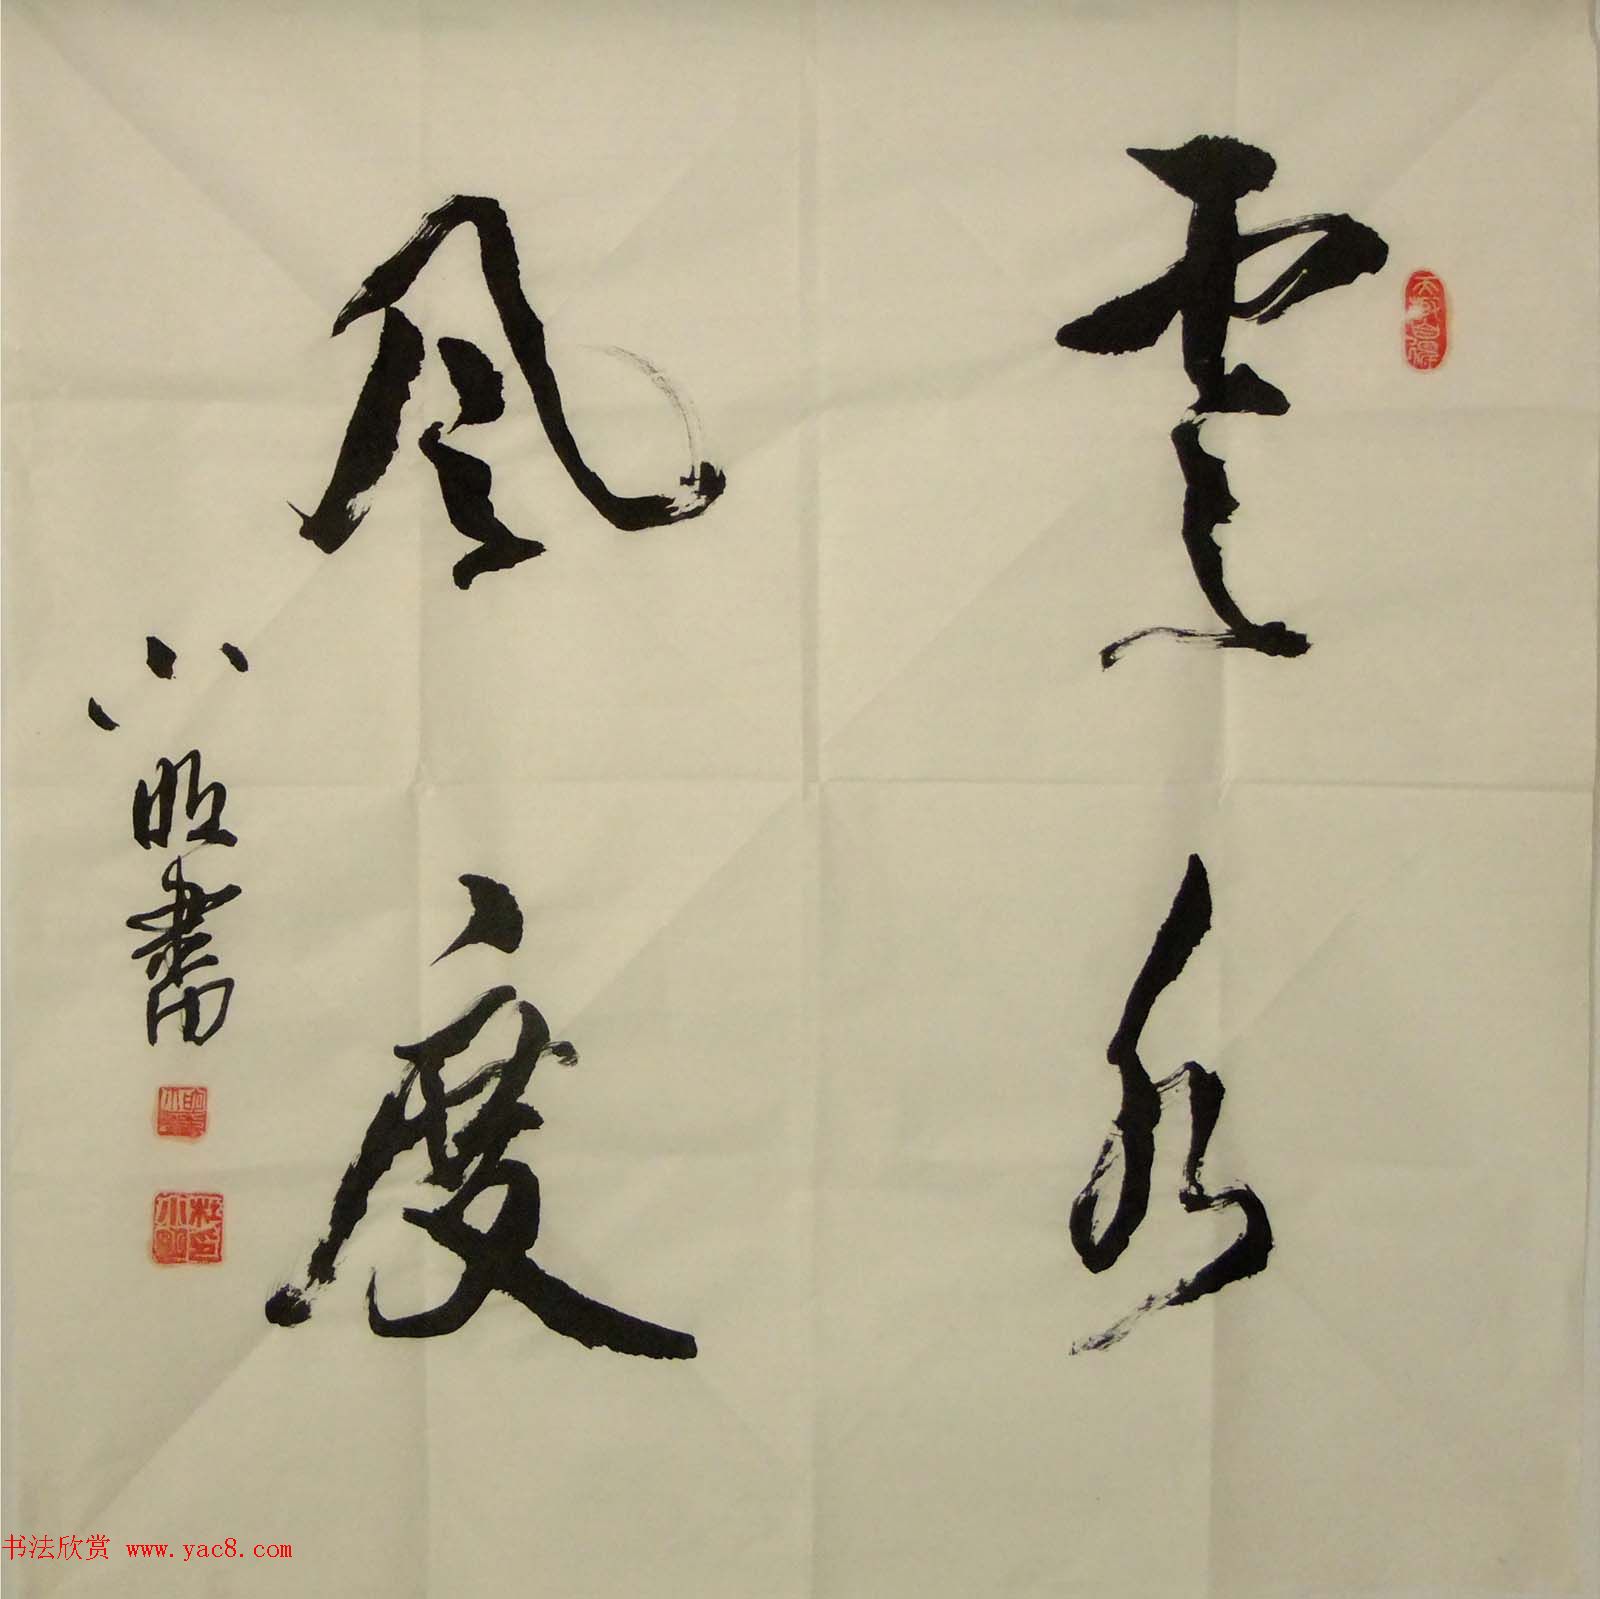 雲水
风度
小明書
书法欣赏 www.yac8.com